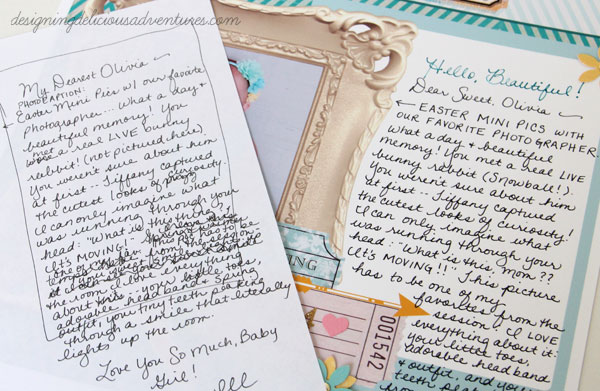 designingdeliciousadventures.com
My Dearest Olivia
PHOTO CAPTION:
Easter Mini Pics w/ our favorite
Photographer... What a day &
beautiful memory! You
met a real LIVE bunny
rabbit! (not pictured here).
You weren't sure about him
at first.. Tiffany captured
the cutest looks of curiosity.
I can only imagine what
was running through your
head: "What is this thing??
It's MOVING!"
the room. I love everything
about this - your little toes,
adorable head band & Spring
outfit, your tiny teeth peaking
through a smile that literally
lights up the room.
Love You So Much, Baby
Girl!
NG
001542
Hello, Beautiful!
Dear Sweet Olivia
EASTER MINI PICS WITH
OUR FAVORITE PHOTOGRAPHER.
What a day & beautiful
memory! You met a real live
bunny rabbit (Snowball!).
You weren't sure about him
at first.. Tiffany captured
the cutest looks of curiosity!
I can only imagine what
was running through your
head: "What is this, Mom??
It's MOVING!!" This picture
has to be one of my
favorites from the
session. I LOVE
everything about it:
your little toes,
adorable head band
& outfit, and your
teeth